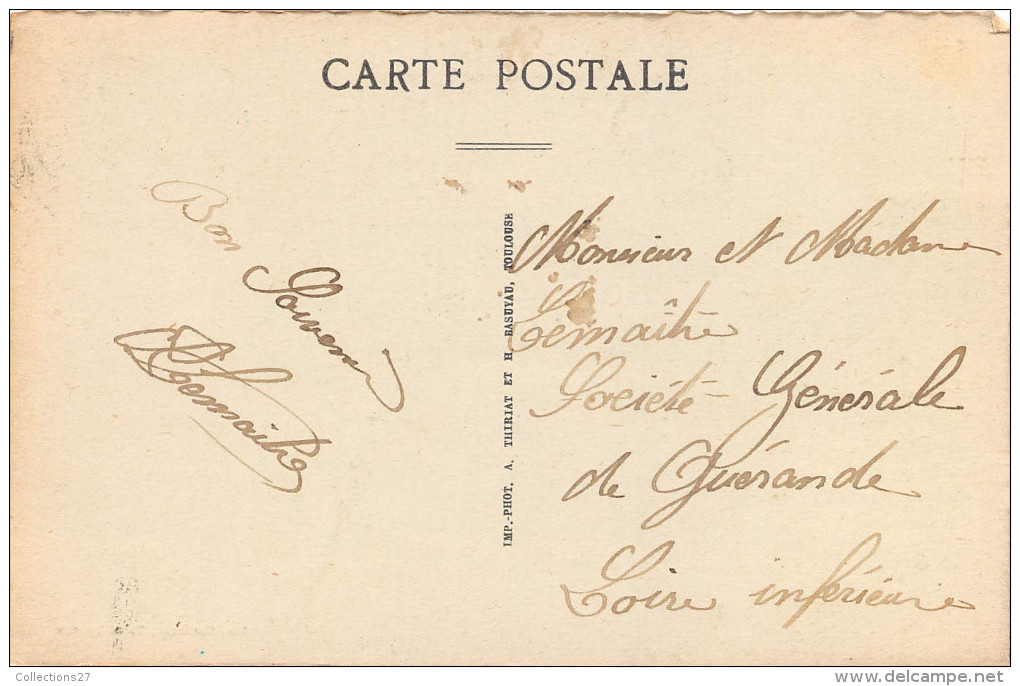 CARTE POSTALE
Bon
Souvenir
Lemaître
IMP.-PHOT. A. THIRIAT ET H. BASUYAU, TOULOUSE
Monsieur et Madame
Lemaître
Société Générale
de Guérande
Loire inférieure
Collections27
www.delcampe.net